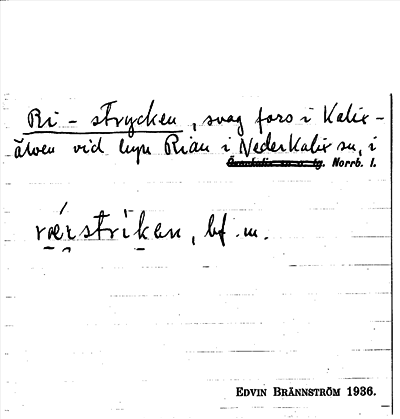 Ri - strycken, svag fors i Kalix-
älven vid byn Rian i Nederkalix sn, i
Norrb. l.
rærstrikan, bf. m.
EDVIN BRÄNNSTRÖM 1936.